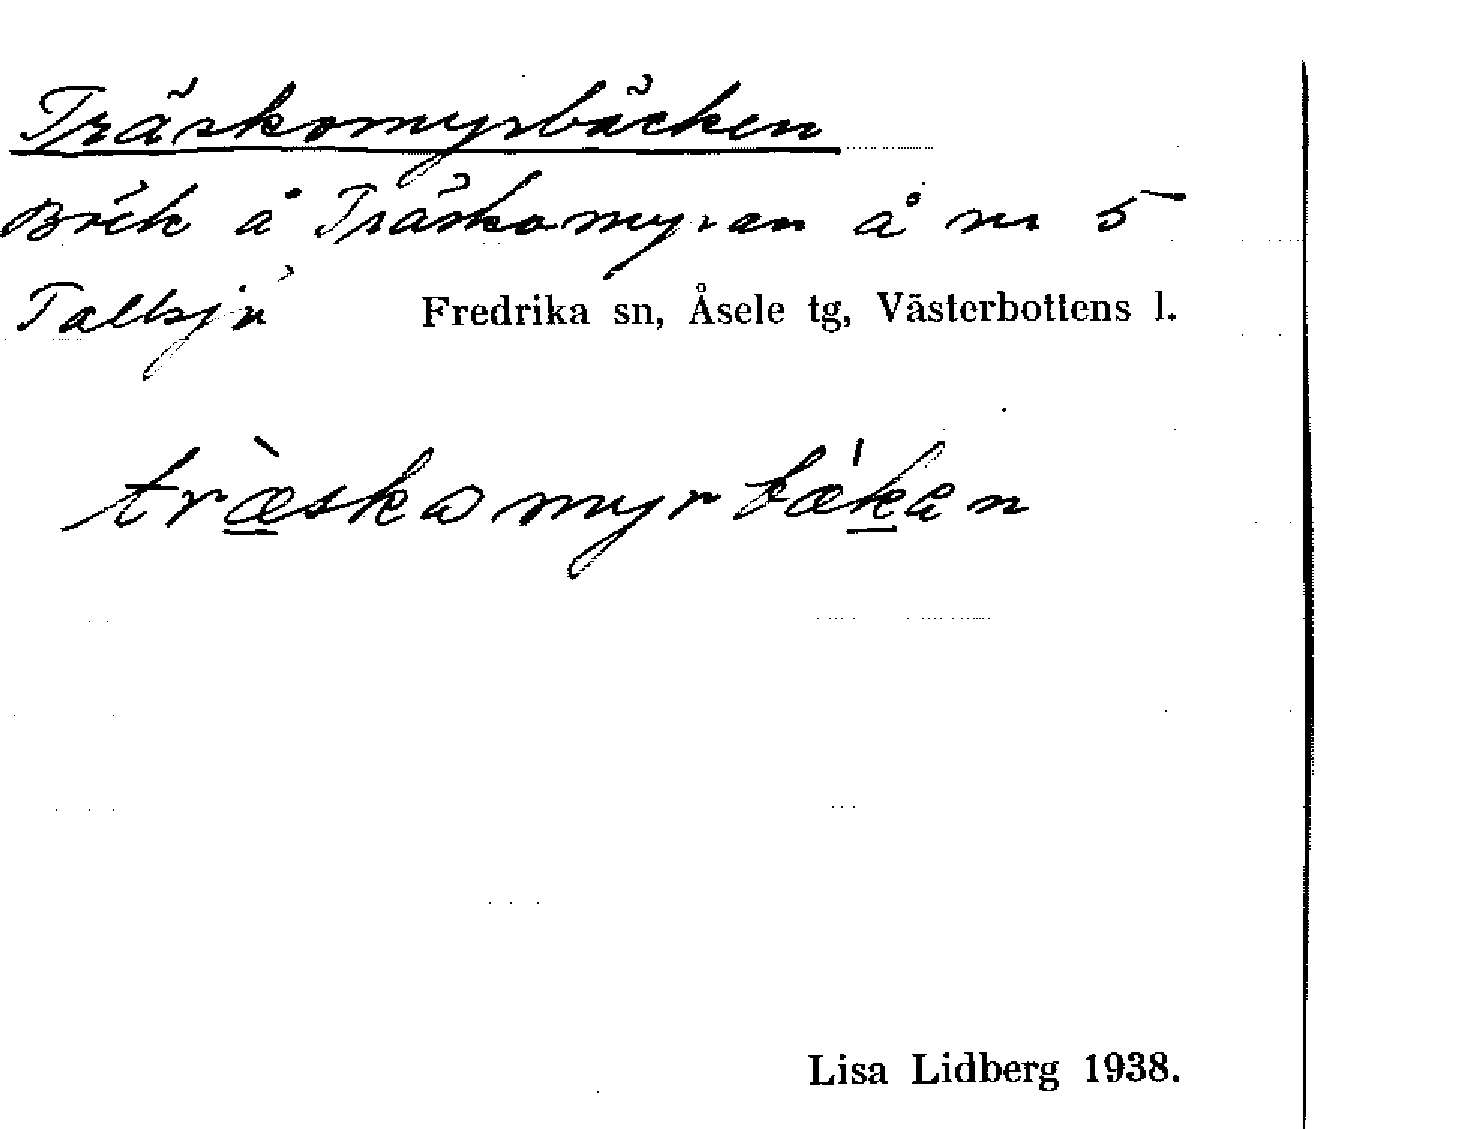 Träskomyrbäcken
Bäck å Träskomyran å nr 5
Tallsjö Fredrika sn, Åsele tg, Västerbottens l.
træ̀skomyrbæ'kan
Lisa Lidberg 1938.